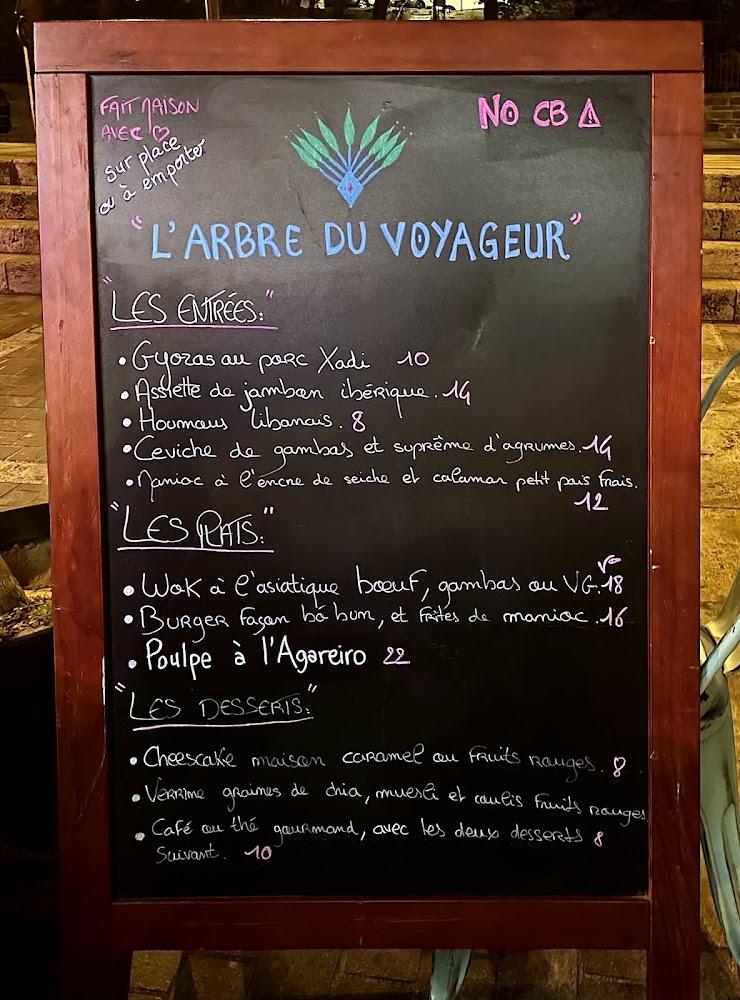 FAIT MAISON
AVEC ♡
sur place
ou à emporter
NO CB ⚠
"L'ARBRE DU VOYAGEUR"
"LES ENTRÉES:"
• Gyozas au porc Xadi 10
• Assiette de jambon ibérique. 14
• Houmous libanais. 8
• Ceviche de gambas et suprême d'agrumes. 14
• Manioc à l'encre de seiche et calamar petit pois frais.
12
"LES PLATS:"
• Wok à l'asiatique boeuf, gambas ou VG. 18
• Burger façon bò bun, et frites de manioc. 16
• Poulpe à l'Agareiro 22
"LES DESSERTS:"
• Cheescake maison caramel ou fruits rouges. 8
• Verrine graines de chia, muesli et coulis fruits rouges
8
• Café ou thé gourmand, avec les deux desserts
suivant. 10